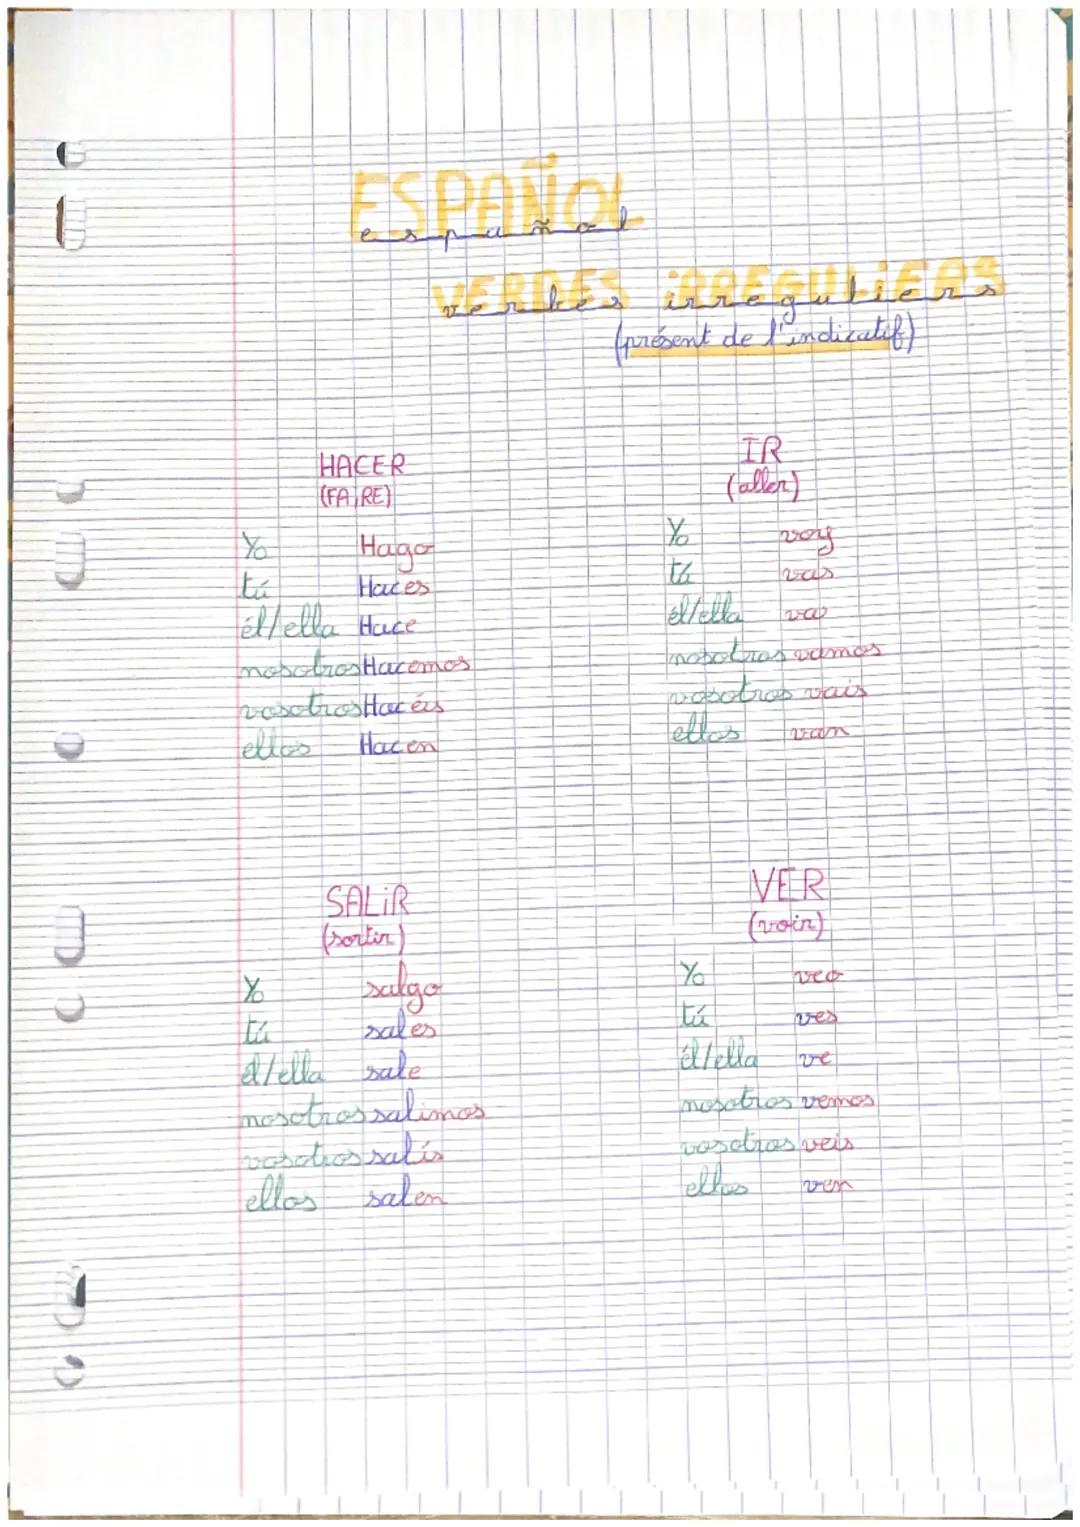 ESPAÑOL
español
VERBES iRREGULiERS
verbes irreguliers
(présent de l'indicatif)
HACER
(FAiRE)
Yo Hago
tú Haces
él/ella Hace
nosotros Hacemos
vosotros Hacéis
ellos Hacen
IR
(aller)
Yo voy
tú vas
él/ella va
nosotros vamos
vosotros vais
ellos van
SALiR
(sortir)
Yo salgo
tú sales
él/ella sale
nosotros salimos
vosotros salís
ellos salen
VER
(voir)
Yo veo
tú ves
él/ella ve
nosotros vemos
vosotros veis
ellos ven